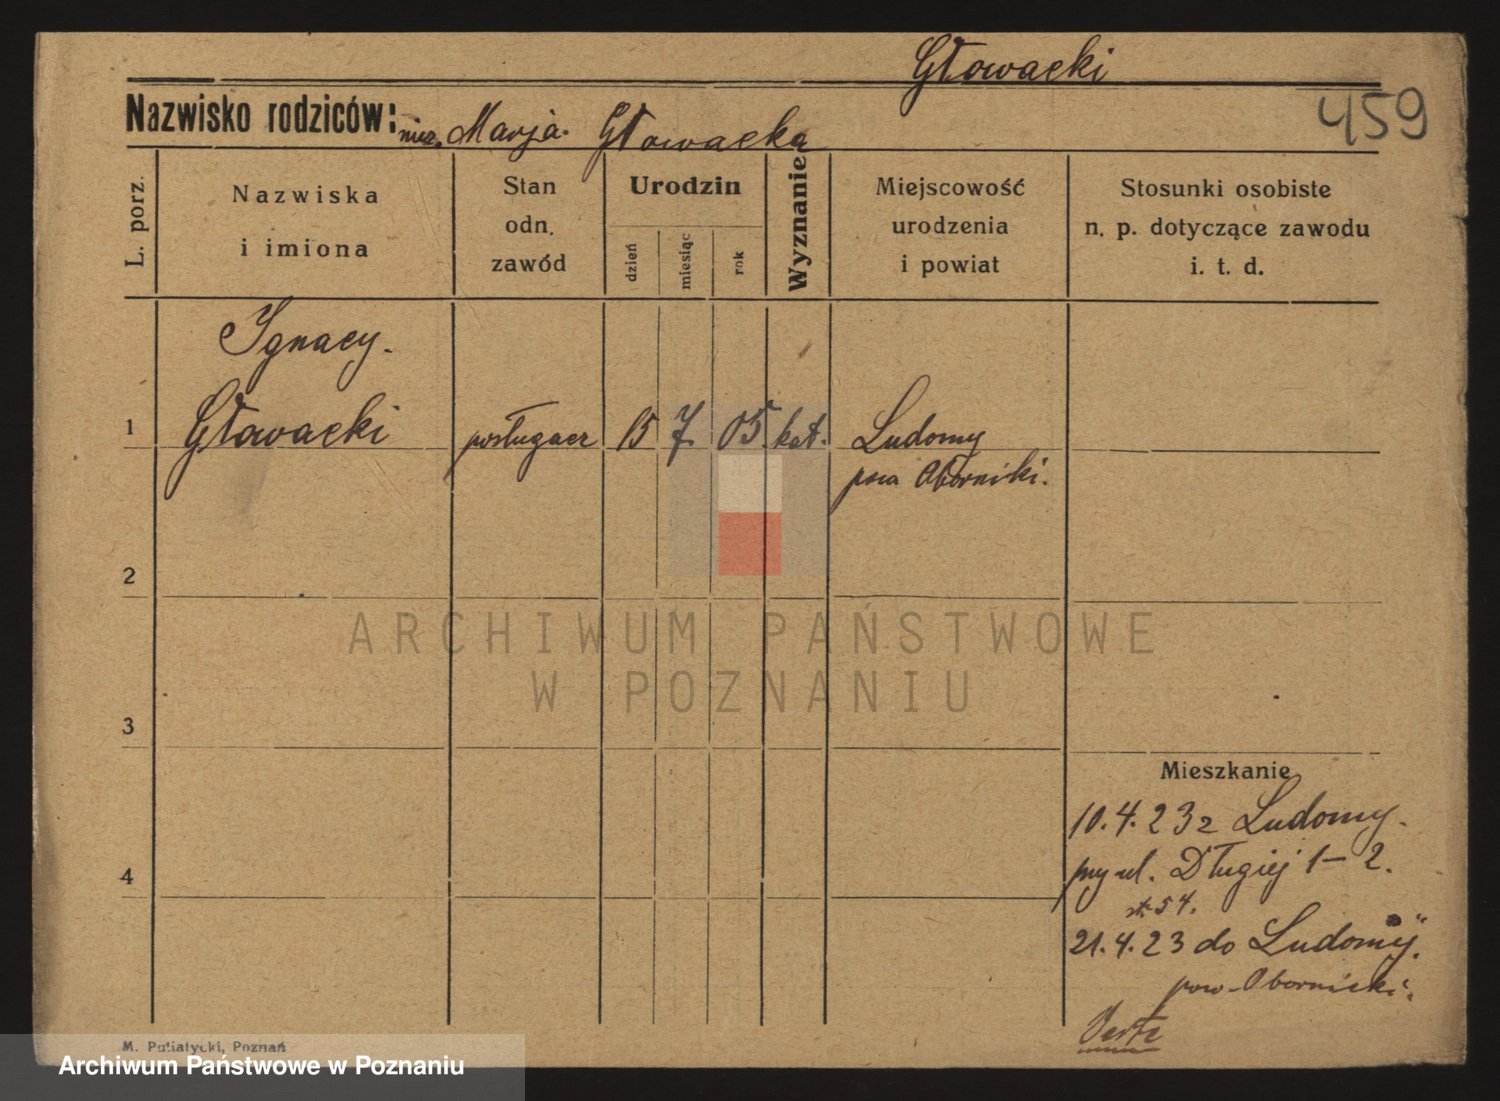 Głowacki
459
Nazwisko rodziców: niez. Marja Głowacka
L. porz.
Nazwiska
i imiona
Stan
odn.
zawód
Urodzin
dzień
miesiąc
rok
Wyznanie
Miejscowość
urodzenia
i powiat
Stosunki osobiste
n. p. dotyczące zawodu
i. t. d.
Ignacy.
1 Głowacki posługacz 15 7. 05. kat. Ludomy
pow Oborniki.
2
ARCHIWUM PAŃSTWOWE
W POZNANIU
3
Mieszkanie
10.4.23 z Ludomy.
przy ul. Długiej 1-2.
4
st. 54.
21.4.23 do Ludomy".
pow-Obornicki.
Verte
M. Putiatycki, Poznań
Archiwum Państwowe w Poznaniu